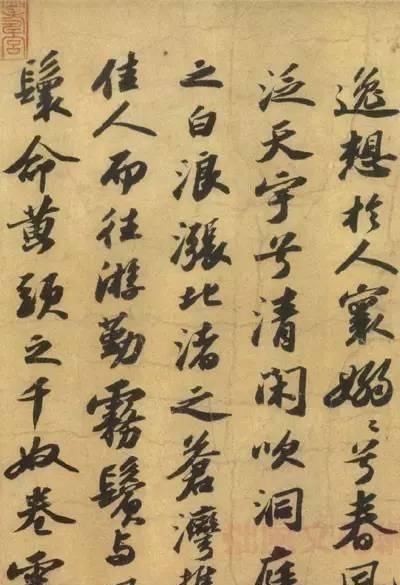 逸想於人寰嫋〻兮春風
泛天宇兮清閑吹洞庭
之白浪漲北渚之蒼灣攜
佳人而往游勤霧鬢与
鬟命黃頭之千奴卷震